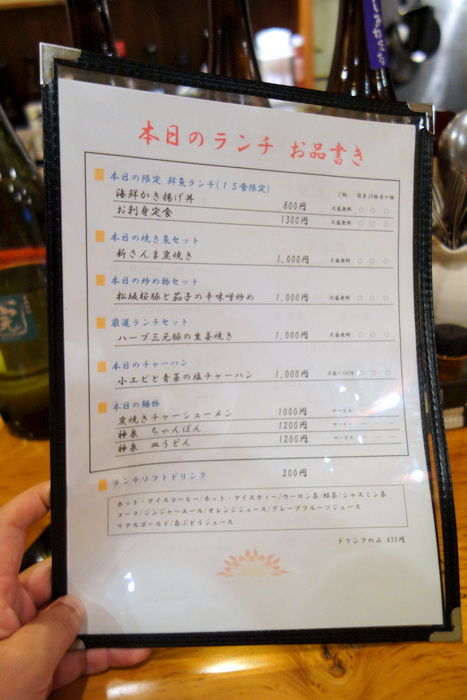 本日のランチ お品書き
本日の限定 鮮魚ランチ(15食限定)
海鮮かき揚げ丼 800円 大盛無料 ○ ○ ○
お刺身定食 1300円 大盛無料 ○ ○ ○
本日の焼き魚セット
新さんま炭焼き 1,000円 大盛無料 ○ ○ ○
本日の炒め物セット
松坂桜豚と茄子の辛味噌炒め 1,000円 大盛無料 ○ ○ ○
厳選ランチセット
ハーブ三元豚の生姜焼き 1,000円 大盛無料 ○ ○ ○
本日のチャーハン
小エビと青菜の塩チャーハン 1,000円 大盛+100円 ○ ○ ○
本日の麺物
炭焼きチャーシューメン 1000円 サービス
神泉 ちゃんぽん 1200円 サービス
神泉 皿うどん 1200円 サービス
ランチソフトドリンク 200円
ホット・アイスコーヒー/ホット・アイスティー/ウーロン茶/緑茶/ジャスミン茶
コーラ/ジンジャーエール/オレンジジュース/グレープフルーツジュース
リアルゴールド/白ぶどうジュース
ドリンクのみ 450円